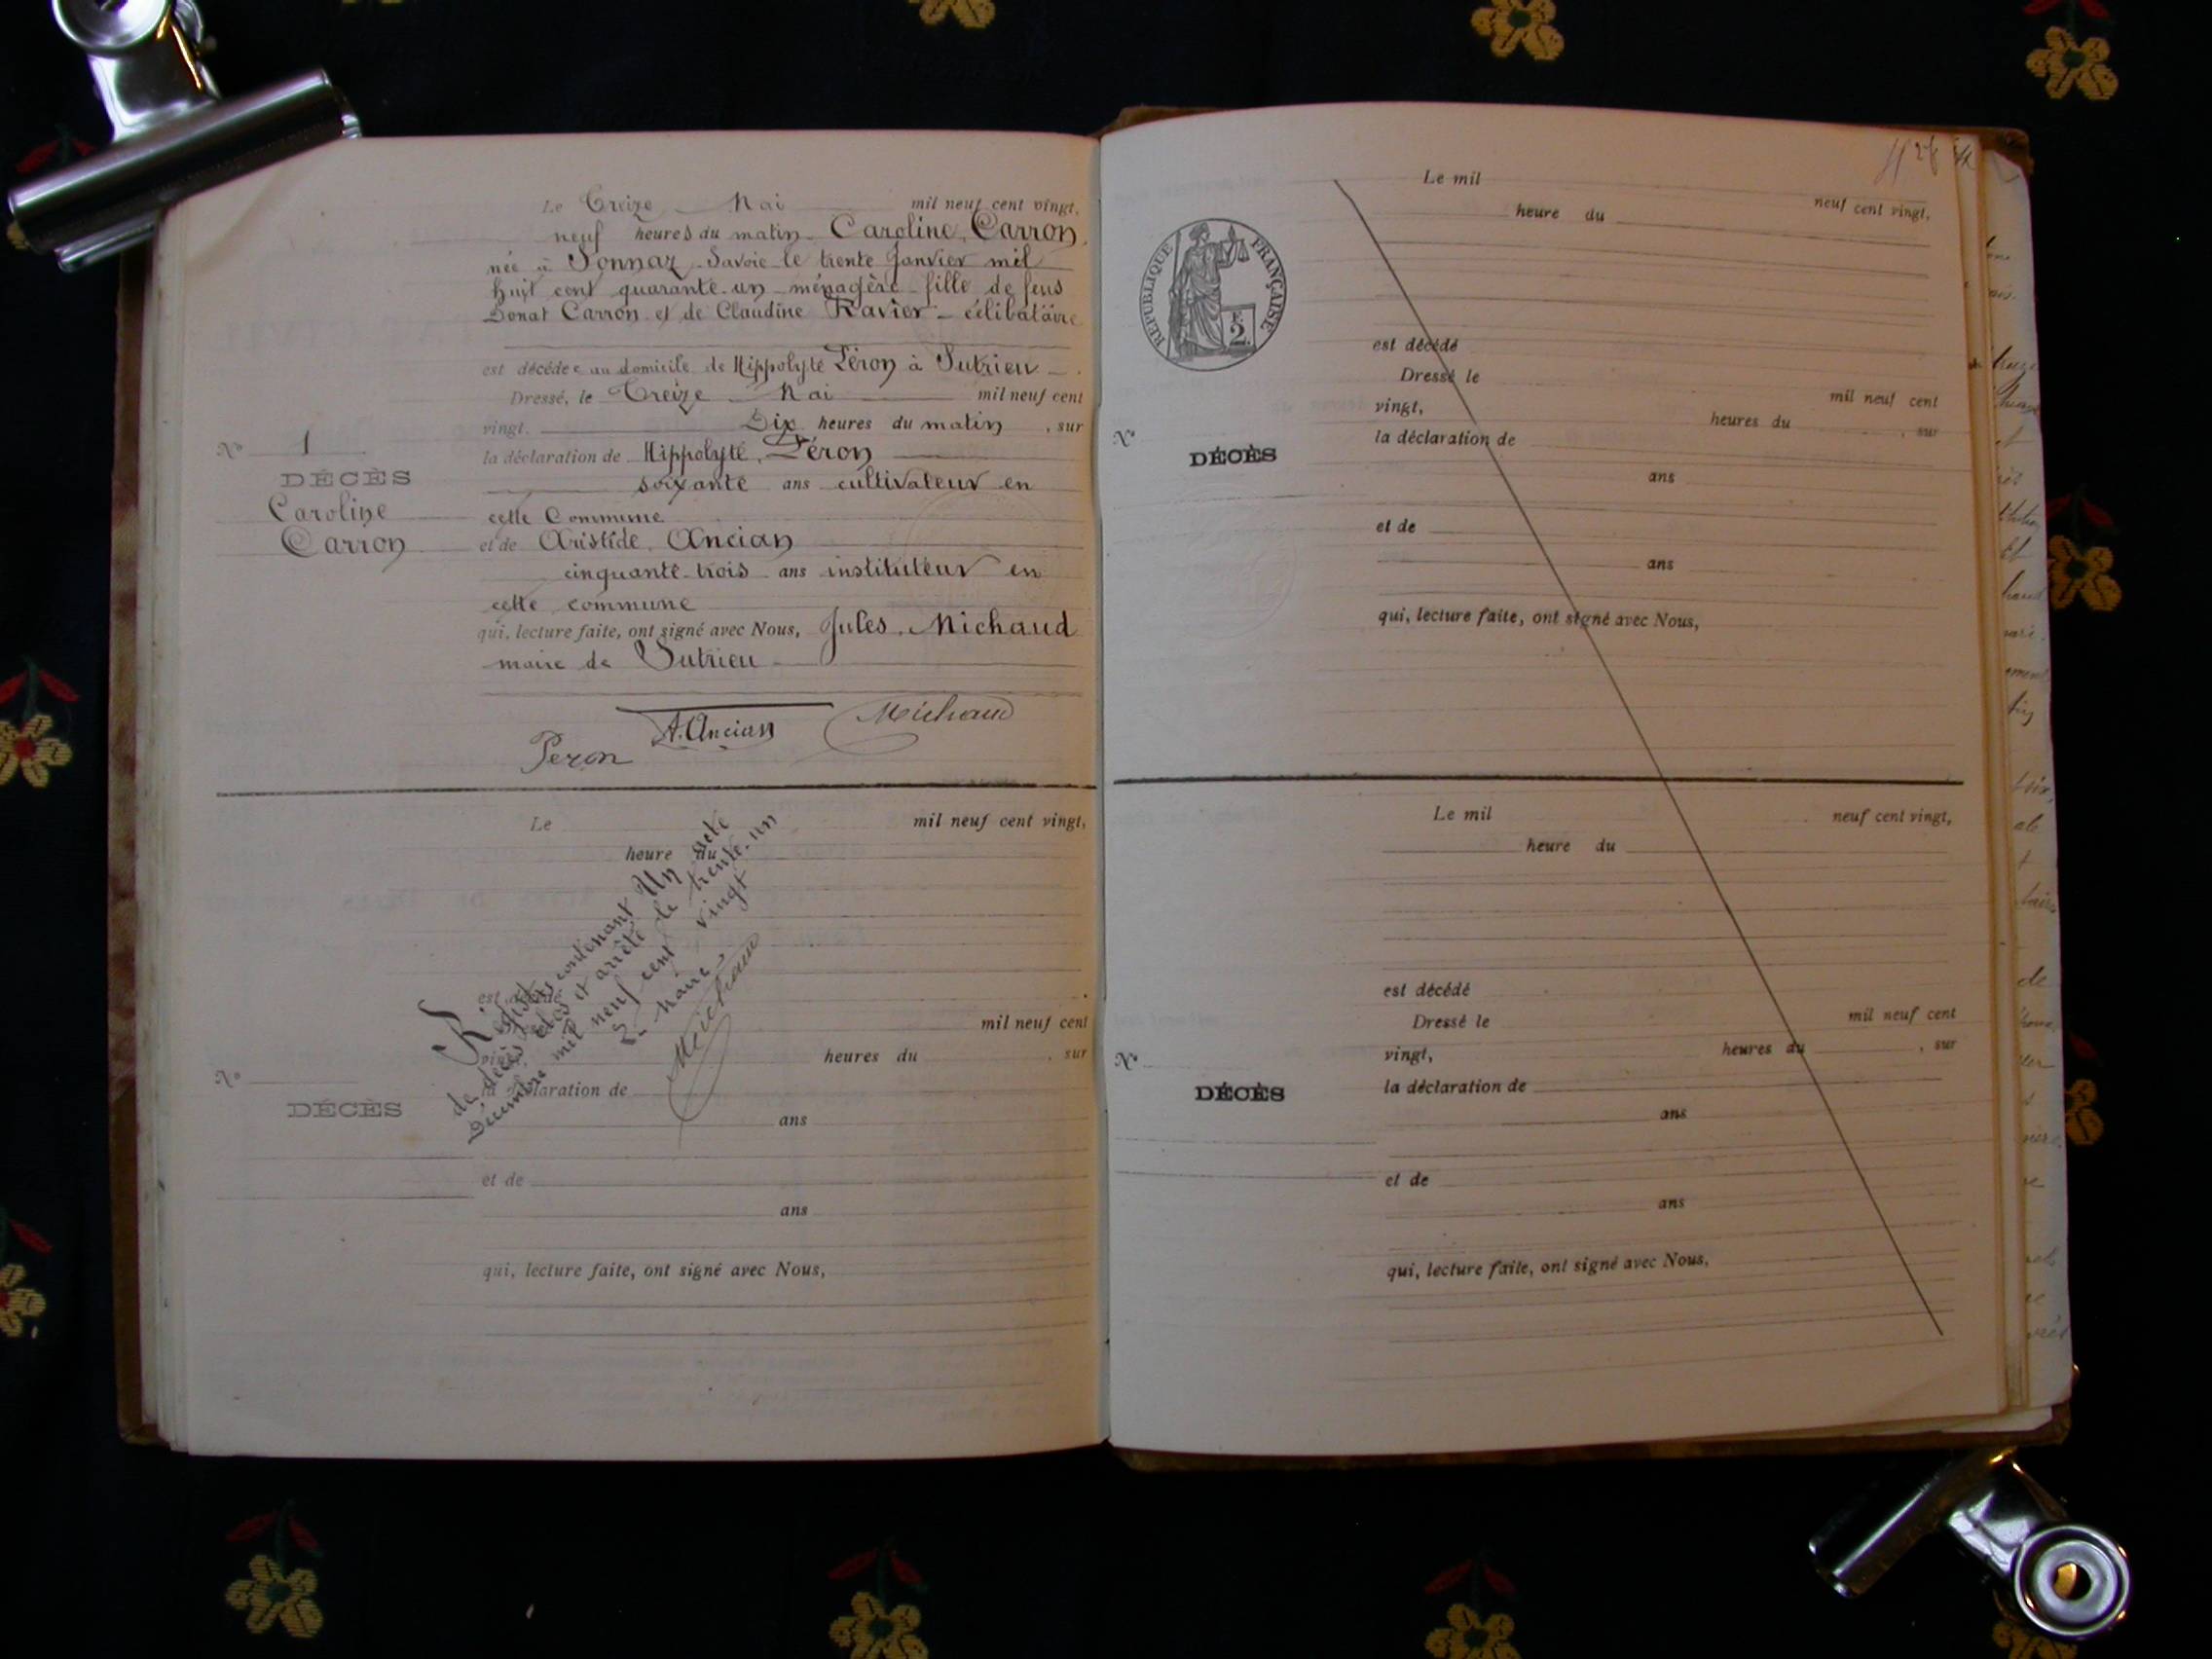 Le Treize Mai mil neuf cent vingt,
neuf heures du matin Caroline Carron,
née à Sonnaz Savoie le trente Janvier mil
huit cent quarante-un ménagère fille de feus
Donat Carron et de Claudine Ravier - célibataire
est décédée au domicile de Hippolyte Péron à Sutrieu
Dressé, le Treize Mai mil neuf cent
vingt, Dix heures du matin, sur
la déclaration de Hippolyte Péron
soixante ans cultivateur en
cette Commune
et de Aristide Ancian
cinquante-trois ans instituteur en
cette commune
qui, lecture faite, ont signé avec Nous, Jules Michaud
maire de Sutrieu
Nº 1
DÉCÈS
Caroline
Carron
Peron A. Ancian Michaud
Le mil neuf cent vingt,
heure du
est décédé
mil neuf cent
heures du , sur
la déclaration de
ans
et de
ans
qui, lecture faite, ont signé avec Nous,
Nº
DÉCÈS
Registre contenant Un acte
de décès clos et arrêté le trente-un
Décembre mil neuf cent vingt
Michaud
Le mil neuf cent vingt,
heure du
RÉPUBLIQUE FRANÇAISE
2
est décédé
Dressé le mil neuf cent
vingt, heures du , sur
la déclaration de
ans
et de
ans
qui, lecture faite, ont signé avec Nous,
Nº
DÉCÈS
Le mil neuf cent vingt,
heure du
est décédé
Dressé le mil neuf cent
vingt, heures du , sur
la déclaration de
ans
et de
ans
qui, lecture faite, ont signé avec Nous,
Nº
DÉCÈS